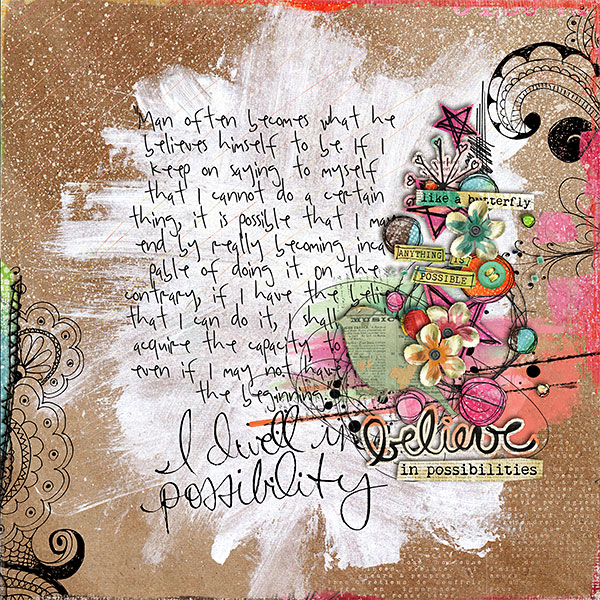 Man often becomes what he
believes himself to be. If I
keep on saying to myself
that I cannot do a certain
thing, it is possible that I may
end by really becoming inca
pable of doing it. On the
contrary, if I have the beli
that I can do it, I shall
acquire the capacity to
even if I may not have
the beginning.
like a butterfly
ANYTHING IS
POSSIBLE
MUSIC
I dwell in
possibility
believe
in possibilities